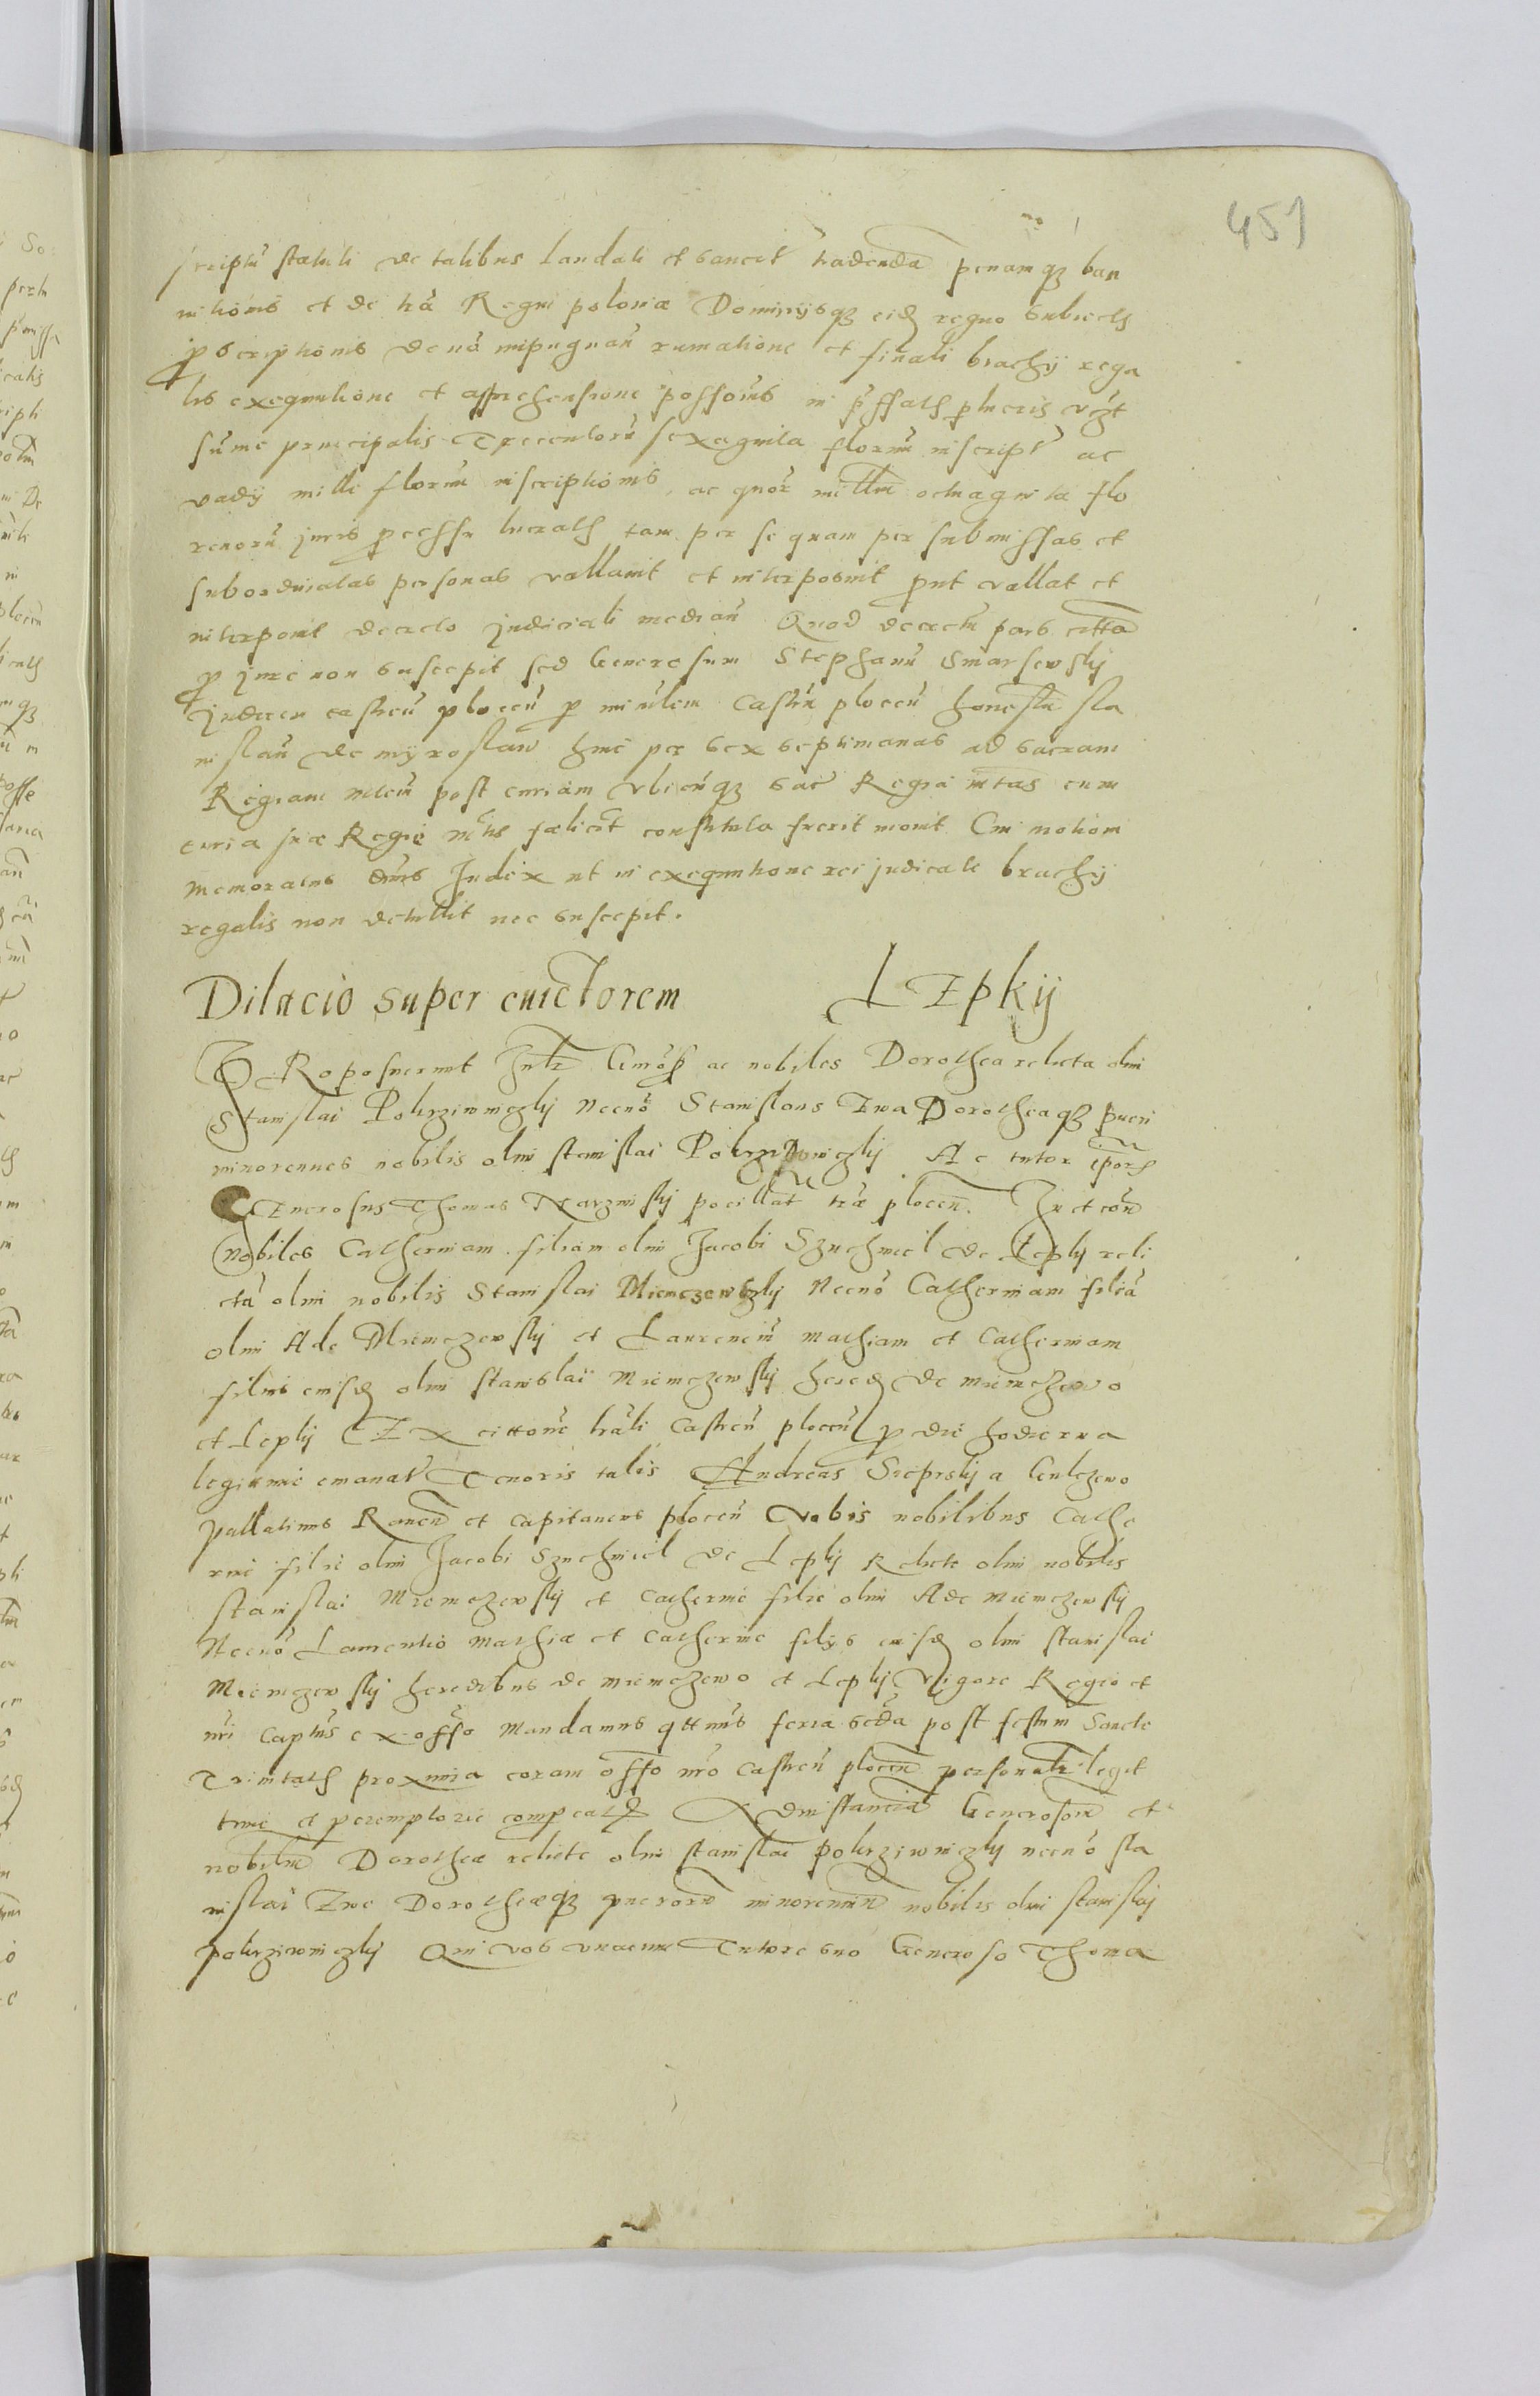 451
scriptũ statuti de talibus laudati et sancit tradenda penamqȝ ban
nitionis et de tra Regni poloniæ Dominijsqȝ eidẽ regno subiectis
proscriptionis de nõ impugnañ rumatione et finali brachij rega
lis exequutione et apprehensione possoins in pffatis plucris vȝt
sume principalis Trecentorũ sexaginta florinũ inscript ac
vadij mille florinũ inscriptionis ac quor millm octuaginta flo
renorũ juris pcessu lucratis tam per se quam per submissas et
subordinatas personas vallavit et interposuit put vallat et
interponit decreto judiciali mediañ Quod decretũ pars citta
p jure non suscepit sed Generosum Stephanũ Smarsewskij
Judicem castreñ ploceñ p minrlem castrñ ploceñ honestũ sta
nislaũ de myroslaw hinc per sex septimanas ad sacram
Regiam mtem post curiam vbicunqȝ sac Regia mtas cum
curia suæ Regie mtis fælicit constituta fuerit monit Cui motioni
memoratus dnus Judex ut in exequutione rei judicate brachij
regalis non detullit nec suscepit.
Dilacio super euictorem LEpkij
PRoposuerunt Intr Gnros ac nobiles Dorothea relicta olim
Stanislai Pokrziwniczkij Necnõ Stanislaus Ewa Dorotheaqȝ pueri
minorennes nobilis olim stanislai Pokrziwniczkij Ac tutor ipsorũ
GEnerosus Thomas Narzimskij pocillat træ ploceñ. In et coñ
Nobiles Catherinam filiam olim Jacobi Szuchmiel de Lepkij reli
ctã olim nobilis Stanislai Miemczewskij Necnõ Catherinam filiã
olim Ade Miemczewskij et Laurenciũ mathiam et Catherinam
filios eiusdẽ olim stanislai Miemczewskij heredẽ de miemczewo
et Lepkij EX cittone trali Castreñ ploceñ p die hodierna
legittime emanat Tenoris talis Andreas Sieprskij a Gulczewo
Pallatinus Raweñ et capitaneus ploceñ Vobis nobilibus Cathe
rine filie olim Jacobi Szuchmiel de Lepkij Relicte olim nobilis
stanislai Miemczewskij et Catherine filie olim Ade Miemczewskij
Necnõ Laurentio Mathiæ et Catherine filijs eiusdẽ olim stanislai
Miemczewskij heredibus de miemczewo et Lepkij Vigore Regio et
nri captus ex offo Mandamus qttnus feria scda post festum Sancte
Trinitatis proxima coram offo nro Castreñ ploceñ personalr legit
time et peremptorie compeatis Ad instanciã Generosorũ et
nobiliũ Dorotheæ relicte olim stanislai pokrziwniczkij necnõ sta
nislai Ewe Dorotheæqȝ puerorũ minorenniũ nobilis olim stanislaj
pokrziwniczkij Qui vos vnacum Tutore suo Generoso Thoma